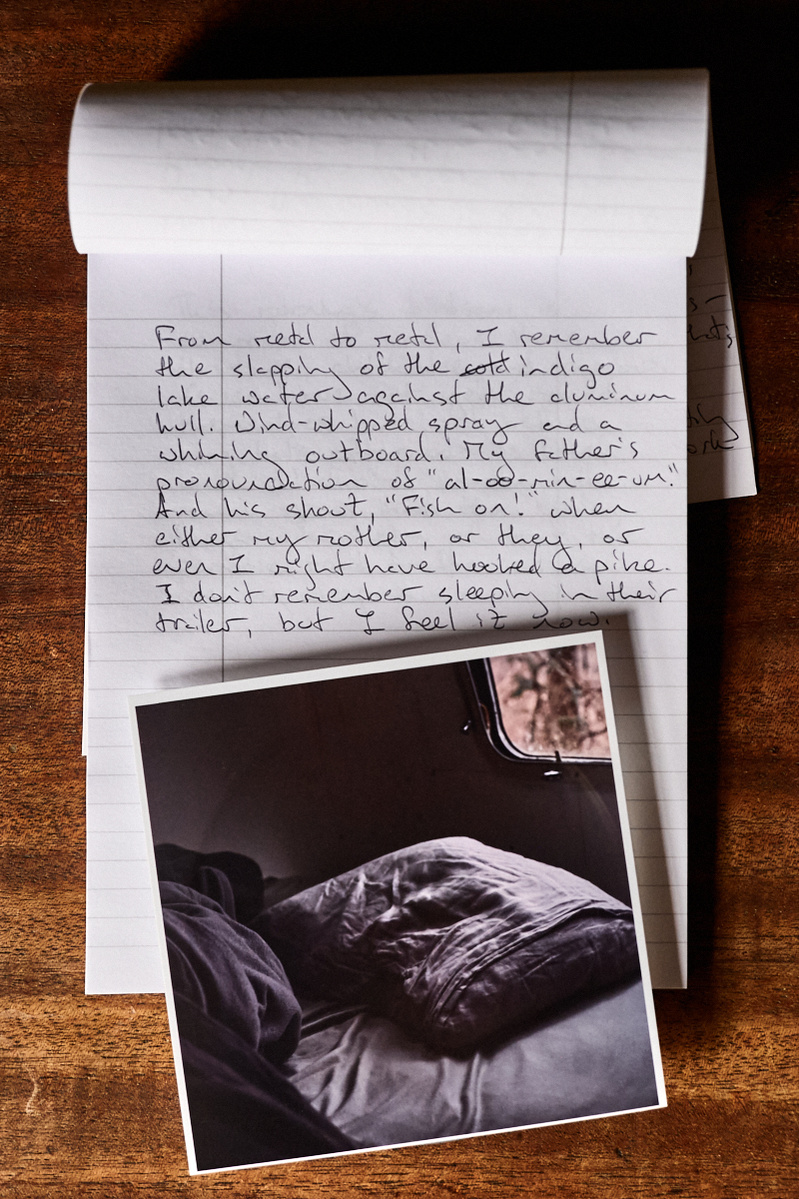 From metal to metal, I remember
the slapping of the cold indigo
lake water against the aluminum
hull. Wind-whipped spray and a
whining outboard. My father's
pronounciation of "al-oo-min-ee-um."
And his shout, "Fish on!" when
either my mother, or they, or
even I might have hooked a pike.
I don't remember sleeping in their
trailer, but I feel it now.